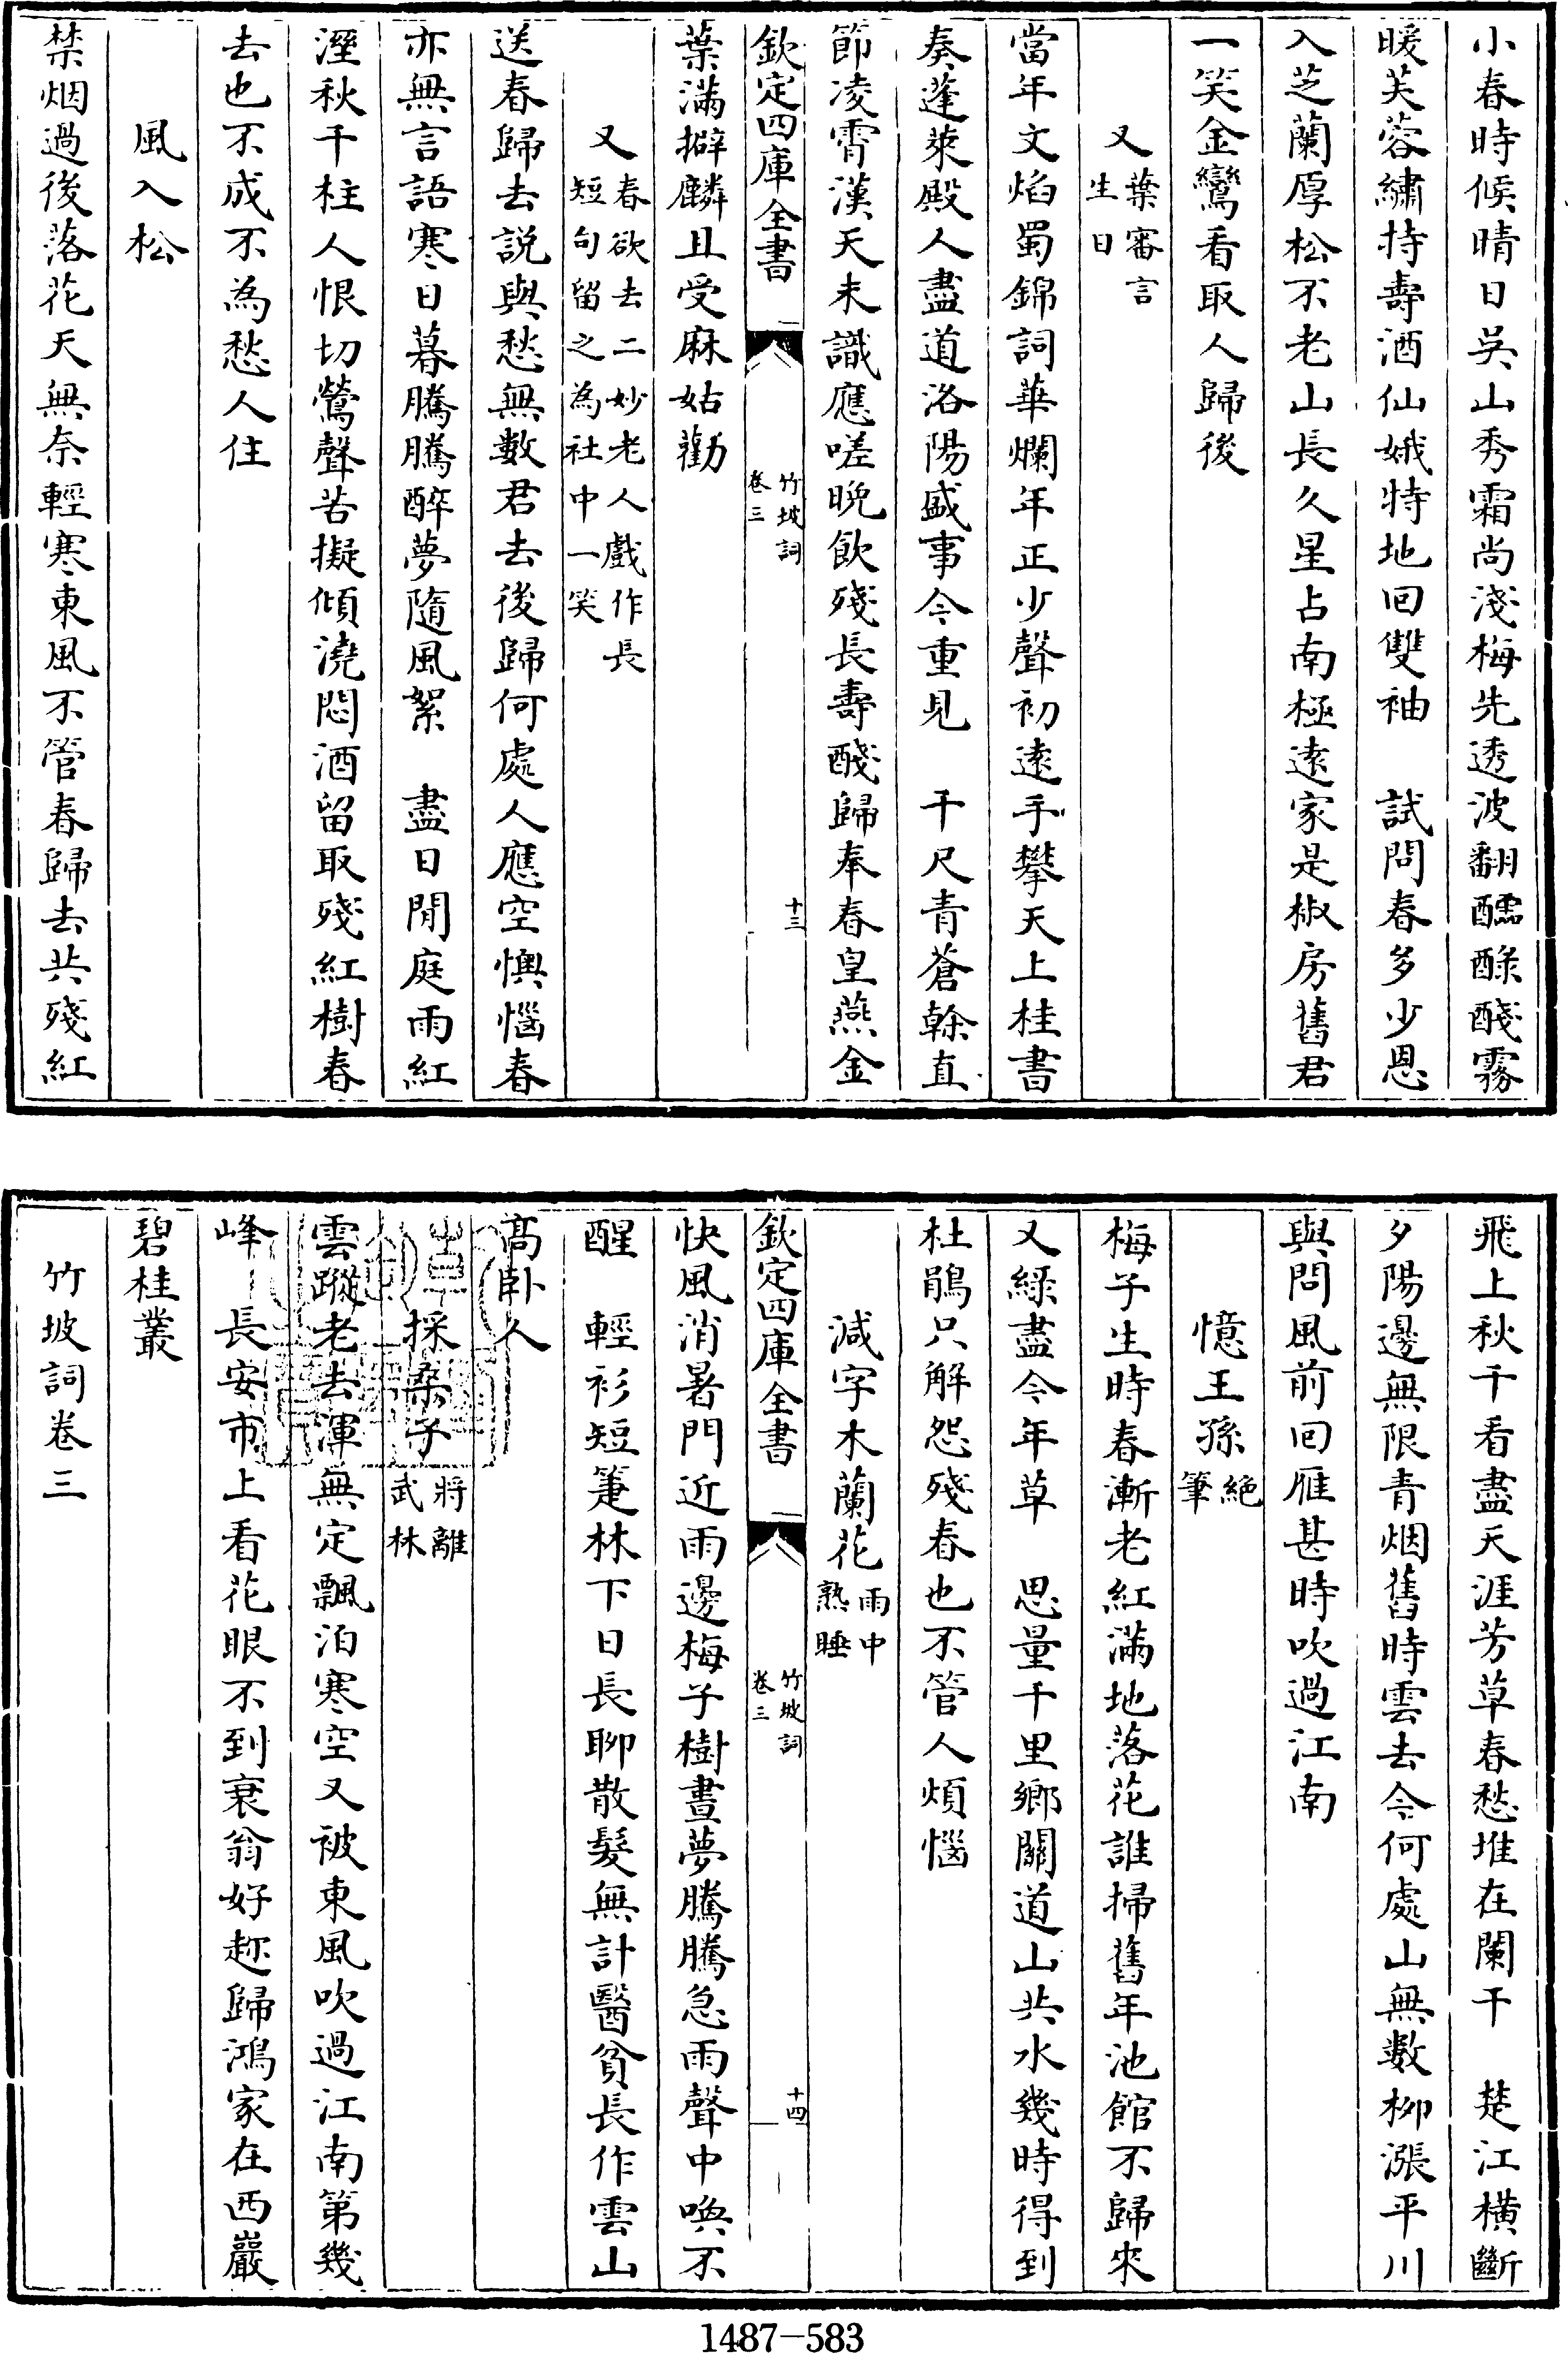 小春時候晴日吳山秀霜尚淺梅先透波翻醽醁醆霧
暖芙蓉繡持壽酒仙娥特地回雙袖　試問春多少恩
入芝蘭厚松不老山長久星占南極遠家是椒房舊君
一笑金鸞看取人歸後
又葉審言
生日
當年文焰蜀錦詞華爛年正少聲初遠手攀天上桂書
奏蓬萊殿人盡道洛陽盛事今重見　千尺青蒼榦直
節凌霄漢天未識應嗟晚飲殘長壽醆歸奉春皇燕金
欽定四庫全書
竹坡詞
卷三
十三
葉滿擗麟且受麻姑勸
又春欲去二妙老人戲作長
短句留之為社中一笑
送春歸去説與愁無數君去後歸何處人應空懊惱春
亦無言語寒日暮騰騰醉夢隨風絮　盡日閒庭雨紅
溼秋千柱人恨切鶯聲苦擬傾澆悶酒留取殘紅樹春
去也不成不為愁人住
風入松
禁烟過後落花天無奈輕寒東風不管春歸去共殘紅
飛上秋千看盡天涯芳草春愁堆在闌干　楚江橫斷
夕陽邊無限青烟舊時雲去今何處山無數柳漲平川
與問風前回雁甚時吹過江南
憶王孫絕
筆
梅子生時春漸老紅滿地落花誰掃舊年池館不歸來
又綠盡今年草　思量千里鄉關道山共水幾時得到
杜鵑只解怨殘春也不管人煩惱
減字木蘭花雨中
熟睡
欽定四庫全書
竹坡詞
卷三
十四
快風消暑門近雨邊梅子樹晝夢騰騰急雨聲中喚不
醒　輕衫短箑林下日長聊散髮無計醫貧長作雲山
高卧人
採桑子將離
武林
雲蹤老去渾無定飄泊寒空又被東風吹過江南第幾
峰　長安市上看花眼不到衰翁好趂歸鴻家在西巖
碧桂叢
竹坡詞卷三
1487－583